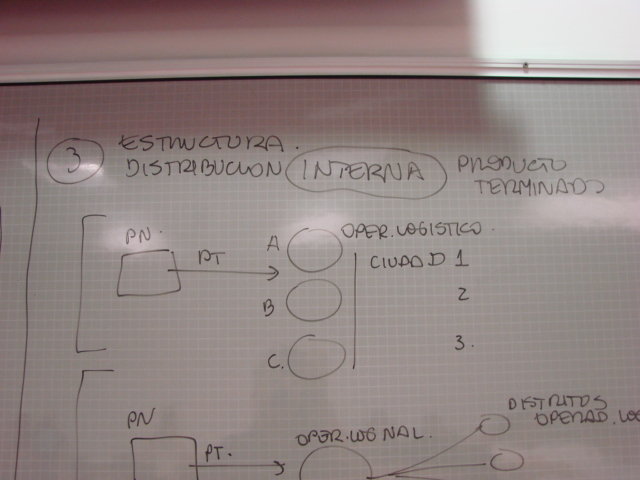 3 ESTRUCTURA.
DISTRIBUCION INTERNA PRODUCTO
TERMINADO
PN. PT A OPER.LOGISTICO.
CIUDAD 1
B 2
C. 3.
PN PT. OPER.LOG NAL. DISTRITOS
OPERAD.LOG